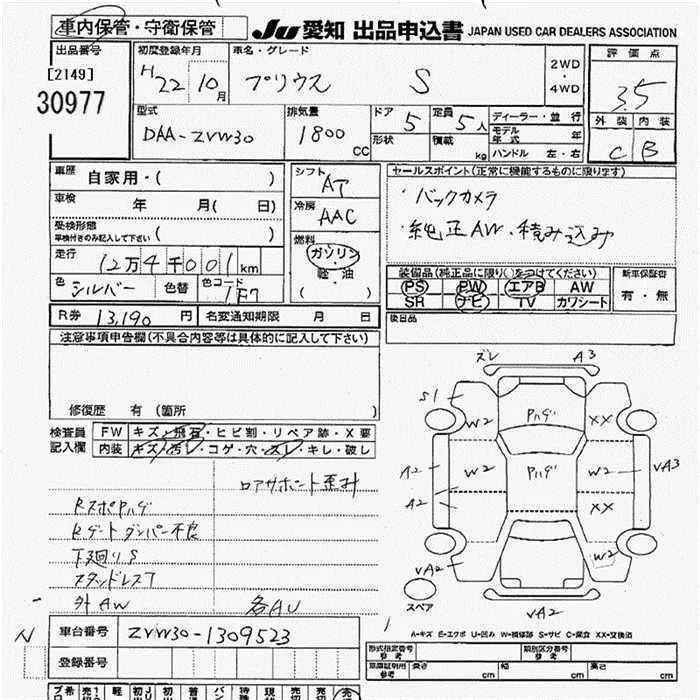 車内保管・守衛保管
JU 愛知 出品申込書 JAPAN USED CAR DEALERS ASSOCIATION
出品番号 初度登録年月 車名・グレード 2WD・4WD 評価点
[2149]
30977
H22 10月 プリウス S 3.5
外装 内装
C B
型式 排気量 ドア 定員 ディーラー・並行
DAA-ZVW30 1800cc 5 5人
モデル年式 年
形状 積載 kg ハンドル 左・右
車歴 自家用・( )
シフト AT
セールスポイント(正常に機能するものに限ります)
車検 年 月( 日)
冷房 AAC
・バックカメラ
・純正AW、積み込み
受検形態 ( )
車検付きのみ記入して下さい
燃料 ガソリン
軽・油
( )
走行 12万4千001km
装備品(純正品に限り○をつけてください) 新車保証書
色 シルバー 色替 色コード 1F7
PS PW エアB AW 有・無
SR ナビ TV カワシート
後日品
R券 13,190円 名変通知期限 月 日
注意事項申告欄(不具合内容等は具体的に記入して下さい)
修復歴 有 (箇所 )
検査員記入欄 FW キズ・飛石・ヒビ割・リペア跡・X要
内装 キズ・汚レ・コゲ・穴・スレ・キレ・破し
ロアサポート歪み
RスポPハゲ
Rゲートダンパー不良
下廻りS
スタッドレスT
外AW 各AU
ズレ A3
S1 W2 Pハゲ XX
A2 W2 Pハゲ W2 VA3
A2 XX
VA2 W2
スペア VA2
A=キズ E=エクボ U=凹み W=補修跡 S=サビ C=腐食 XX=交換済
N 車台番号 ZVW30-1309523
登録番号
形式指定番号 参考 類別区分番号 参考
車庫証明用 参考 長さ cm 幅 cm 高さ cm